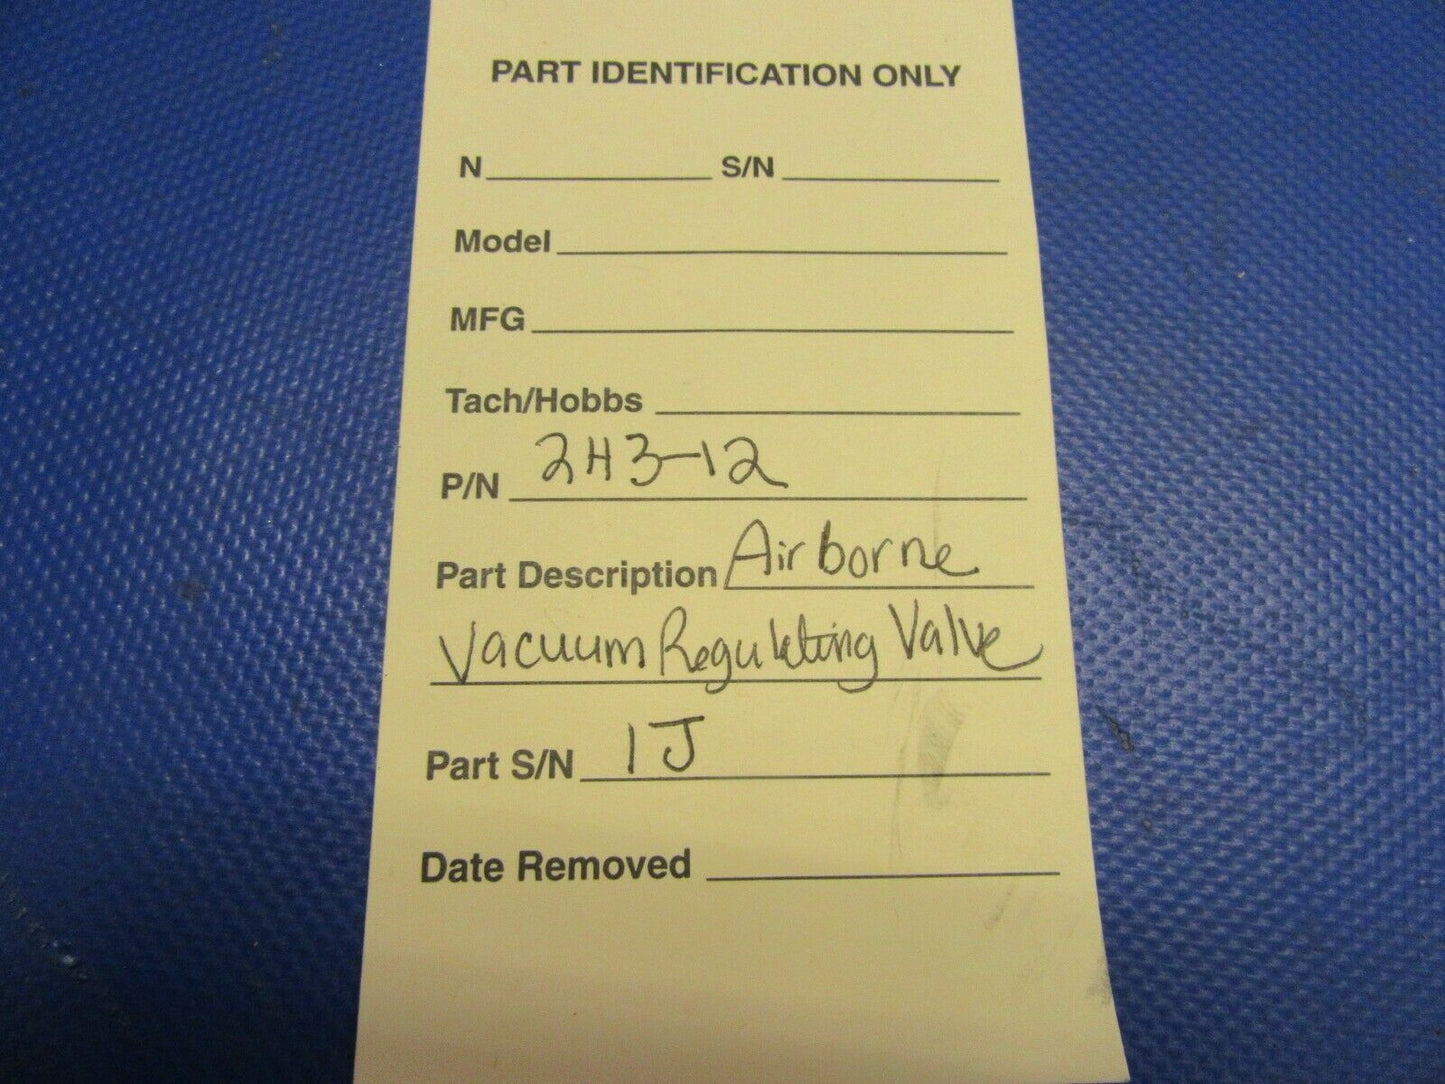 PART IDENTIFICATION ONLY
N__________ S/N__________
Model__________
MFG__________
Tach/Hobbs__________
P/N 2H3-12
Part Description Airborne
Vacuum Regulating Valve
Part S/N 1J
Date Removed__________